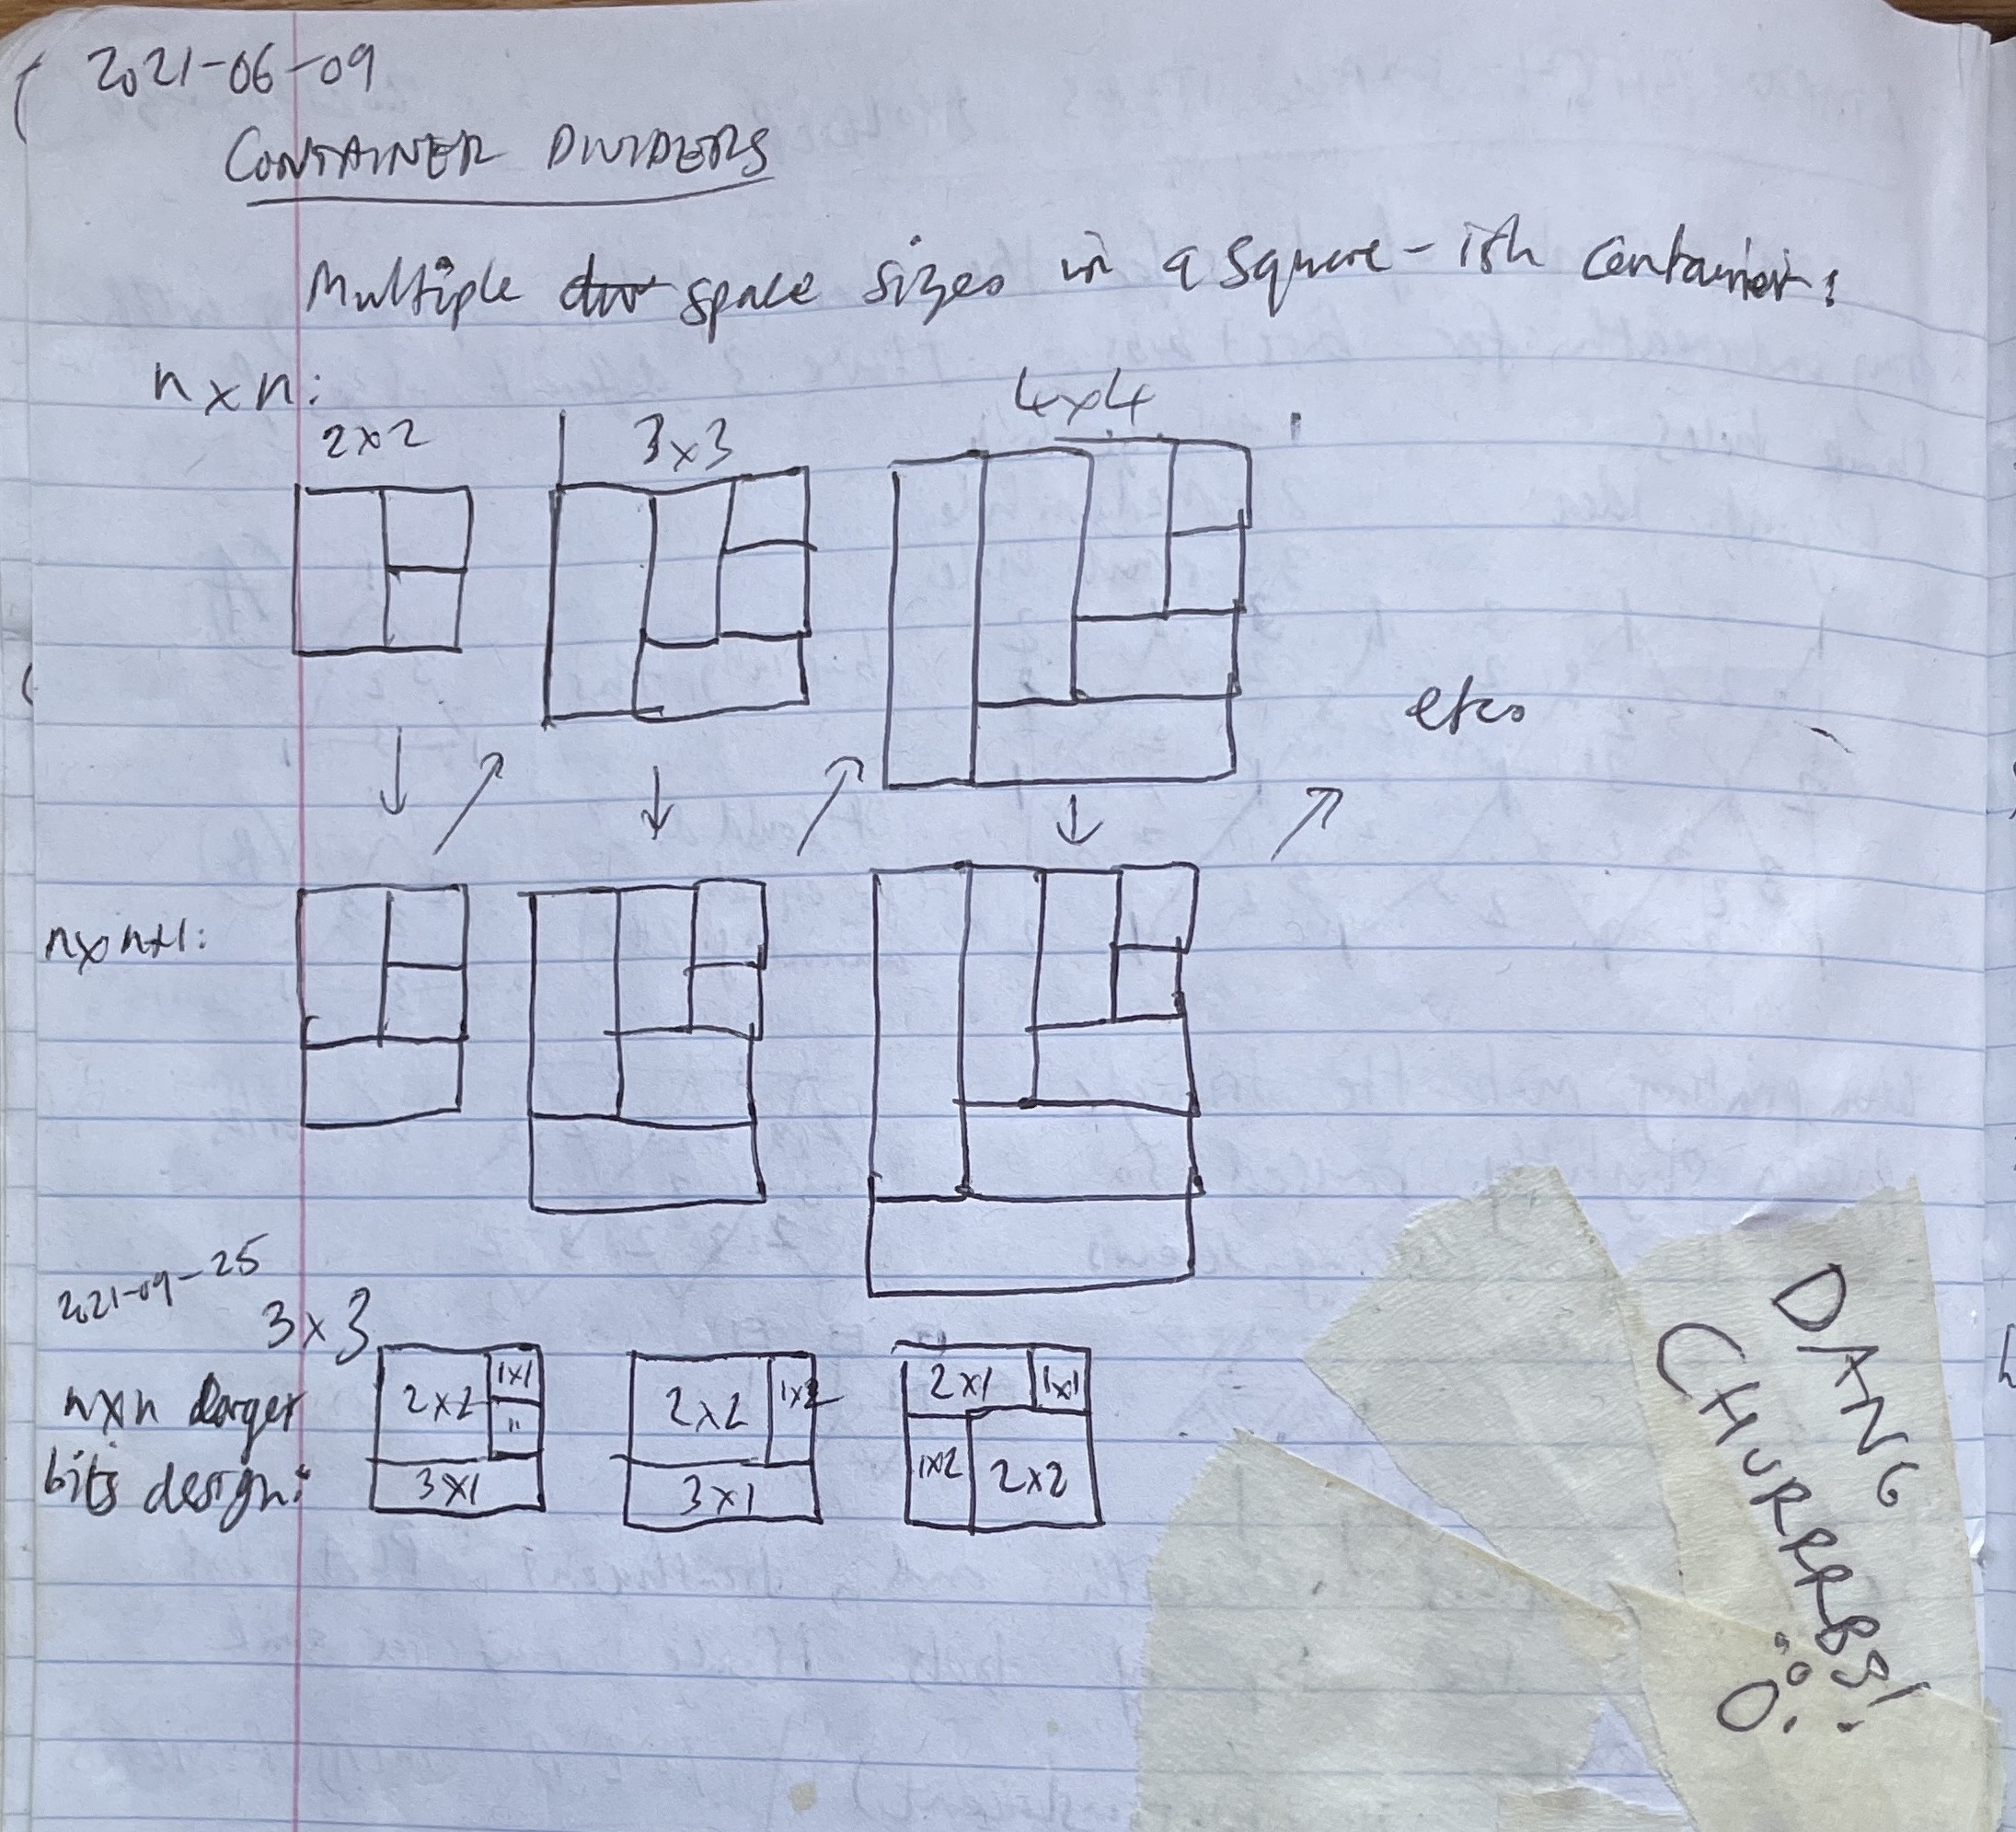 2021-06-09
CONTAINER DIVIDERS
Multiple space sizes in a square-ish container:
nxn:
2x2
3x3
4x4
etc.
nxn+1:
2021-09-25
3x3
nxn larger
bits design:
2x2
1x1
"
3x1
2x2
1x2
3x1
2x1
1x1
1x2
2x2
DANG
CHURRRBS!